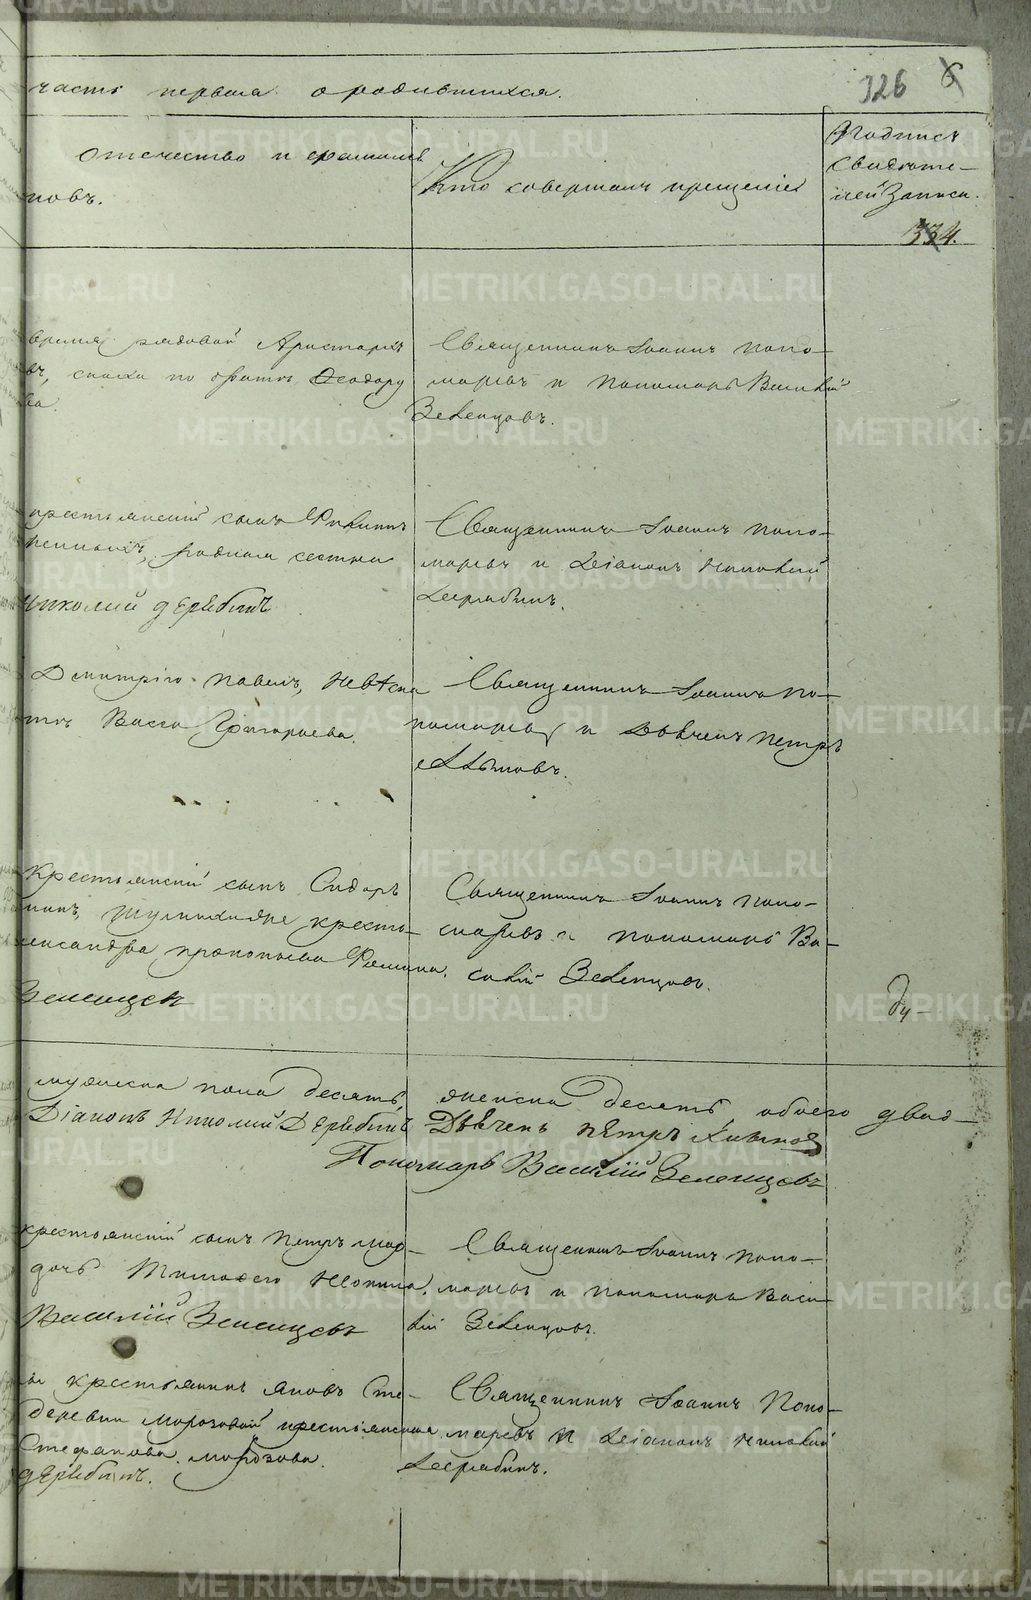 часть первая о родившихся.
326 6
отечество и фамилія
повъ.
Кто совершалъ крещеніе
Подпись
свидѣте-
лей записи.
334.
время рядовой Аристархъ
въ, сноха по братѣ Ѳеодору
ва.
Священникъ Іоаннъ Поно-
маревъ и Пономарь Василій
Зеленцовъ.
крестьянскій сынъ Филиппъ
родная сестра
Николай Дерябинъ
Священникъ Іоаннъ Поно-
маревъ и Діаконъ Николай
Дерябинъ.
Дмитріе Павелъ, невѣста
Васса Григорьева.
Священникъ Іоаннъ По-
номаревъ и Дьячекъ Петръ
Хлыновъ.
Крестьянскій сынъ Сидоръ
нинъ, крестья-
лександра Прокопьева
Зеленцовъ
Священникъ Іоаннъ Поно-
маревъ и Пономарь Ва-
силій Зеленцовъ.
Ду-
мужеска пола десять, женска десять, обоего двад-
Діаконъ Николай Дерябинъ Дьячекъ Петръ Хлыновъ
Пономарь Василій Зеленцовъ
крестьянскій сынъ Петръ
дочь Тимофеева
Василій Зеленцовъ
Священникъ Іоаннъ Поно-
маревъ и Пономарь Васи-
лій Зеленцовъ.
крестьянинъ Яковъ Сте-
деревни Морозовой крестьянская
Стефанова Морозова.
Дерябинъ.
Священникъ Іоаннъ Поно-
маревъ и Діаконъ Николай
Дерябинъ.
METRIKI.GASO-URAL.RU